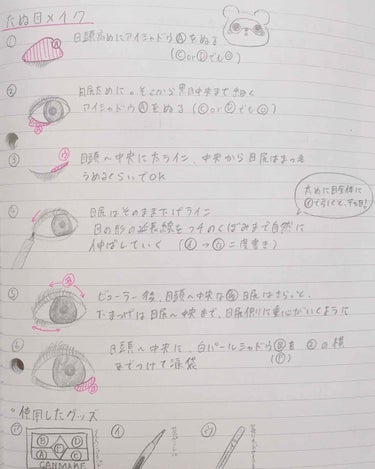 たぬ目メイク
① 目頭高めにアイシャドウⒶをぬる
(ⒸorⒹでも◎)
② 目尻太めに。そこから黒目中央まで細く
アイシャドウⒶをぬる (ⒸorⒹでも◎)
③ 目頭〜中央に太ライン、中央から目尻はまつ毛
うめるくらいでOK
太めに目全体に
④ 目尻はそのまま下げライン
目の形の延長線をつ
のくぼみまで自然に
伸ばしていく (㋑→㋒二度書き)
⑤ ビューラー後、目頭〜中央
目尻はさらっと、
下まつげは目尻〜中央まで、目尻側に重心がいくように
⑥ 目頭〜中央に、白パールシャドウⒷを
の横
までつけて涙袋
°使用したグッズ
㋐
Ⓑ Ⓓ
Ⓔ
Ⓐ Ⓒ
CANMAKE
㋑
㋒